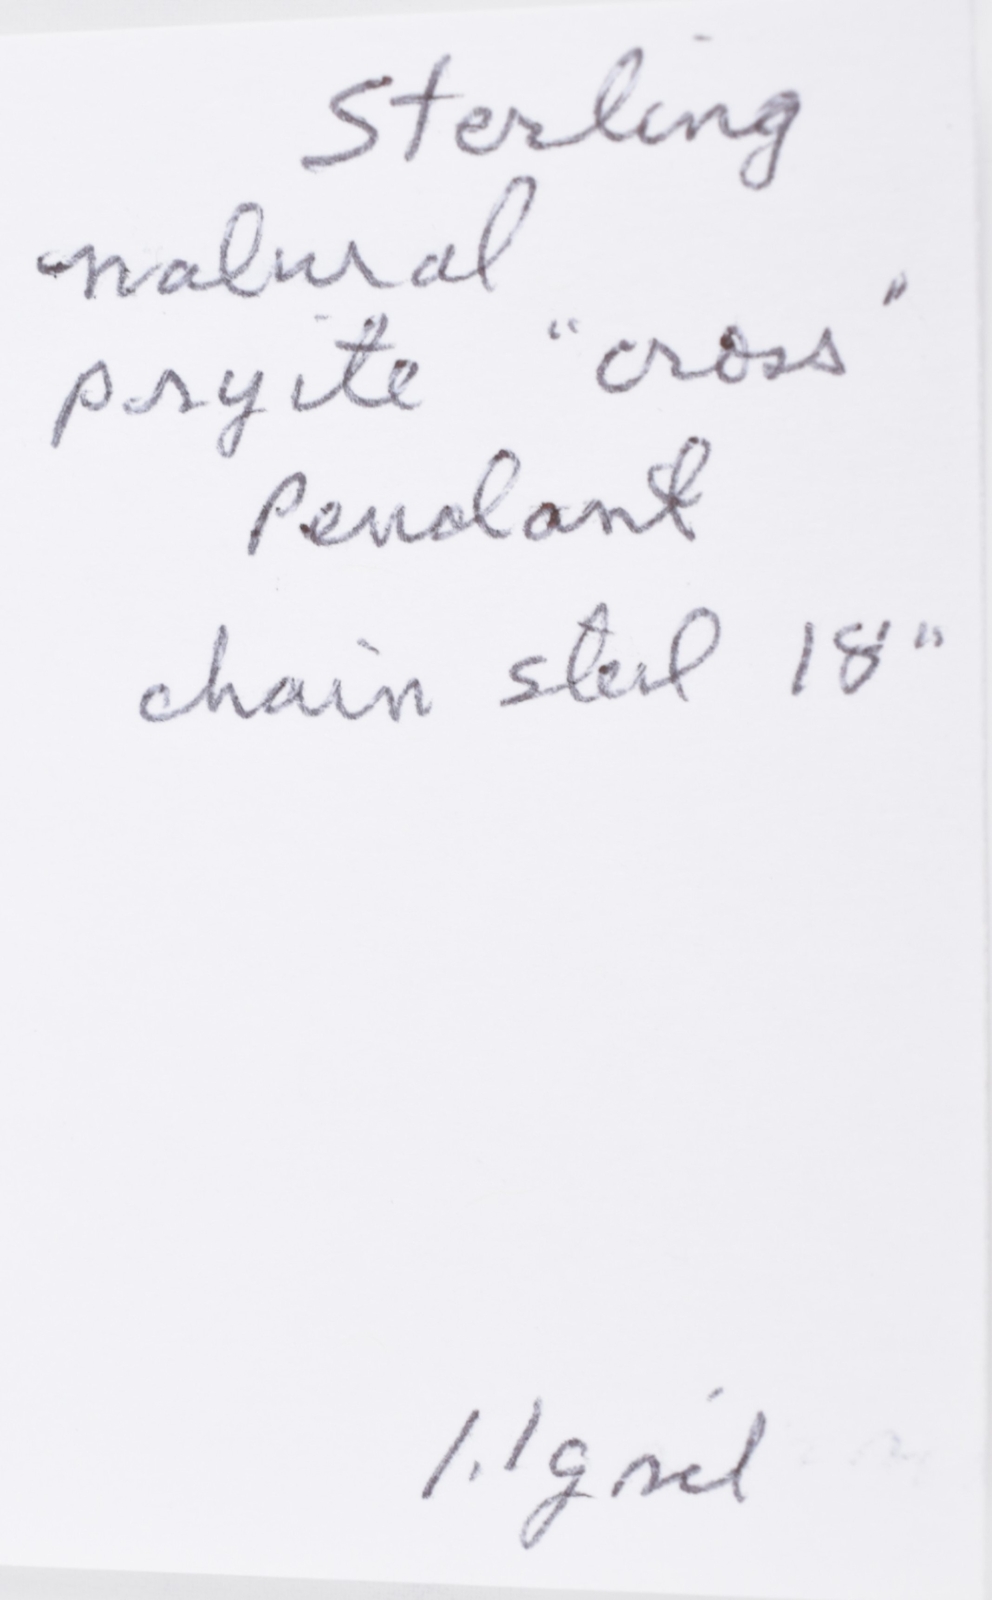 Sterling
natural
pryite "cross"
Pendant
chain steel 18"
1.1g